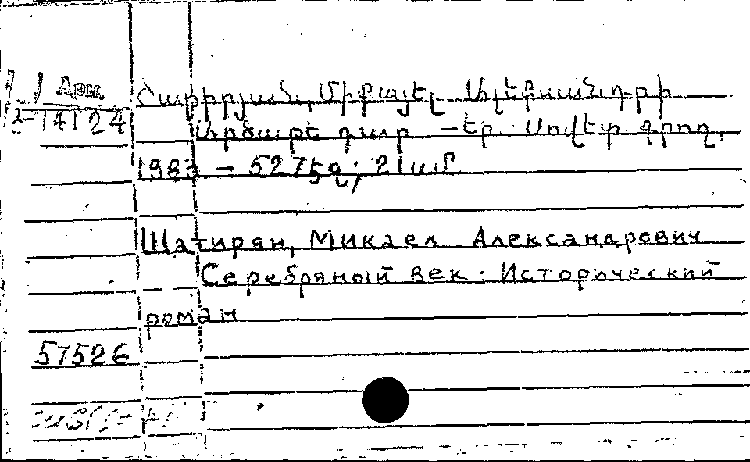 Շատիրյան, Միքայել Ալեքսանդրի
14124
Արծաթե դար — Եր. Սովետ. գրող,
1983 — 527 էջ; 21 սմ
Шатирян, Микаел Александрович
Серебряный век. Исторический
роман
57526